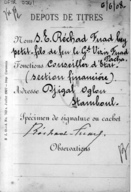 DEPOTS DE TITRES
Nom S. E. Réchad Fuad bey
petit-fils de feu le Gd Vizir Fuad
Pacha.
Fonctions Conseiller d'Etat
(section financière).
Adresse Djigal Oglou
Stamboul.
Spécimen de signature ou cachet
Réchad Fuad
Observations